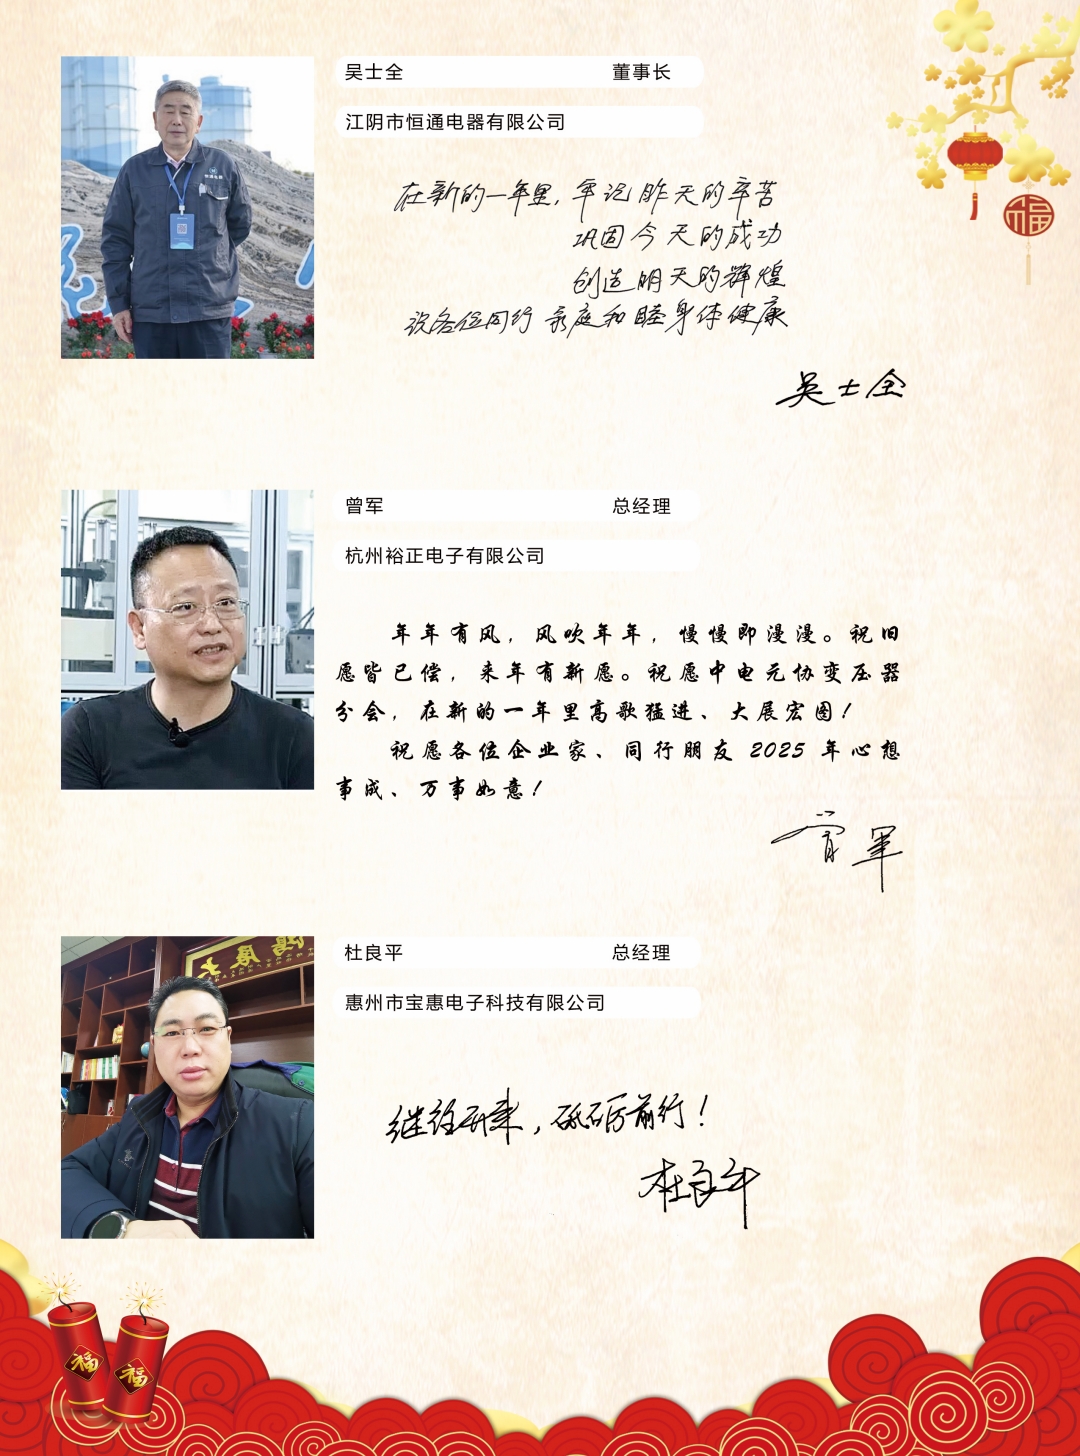 吴士全 董事长
江阴市恒通电器有限公司
在新的一年里,牢记昨天的辛苦
巩固今天的成功
创造明天的辉煌
祝各位同行 家庭和睦身体健康
吴士全
曾军 总经理
杭州裕正电子有限公司
年年有风，风吹年年，慢慢即漫漫。祝旧
愿皆已偿，来年有新愿。祝愿中电元协变压器
分会，在新的一年里高歌猛进、大展宏图！
祝愿各位企业家、同行朋友 2025 年心想
事成、万事如意！
曾军
大展鸿
杜良平 总经理
惠州市宝惠电子科技有限公司
继往开来，砥砺前行！
杜良平
福
福
福